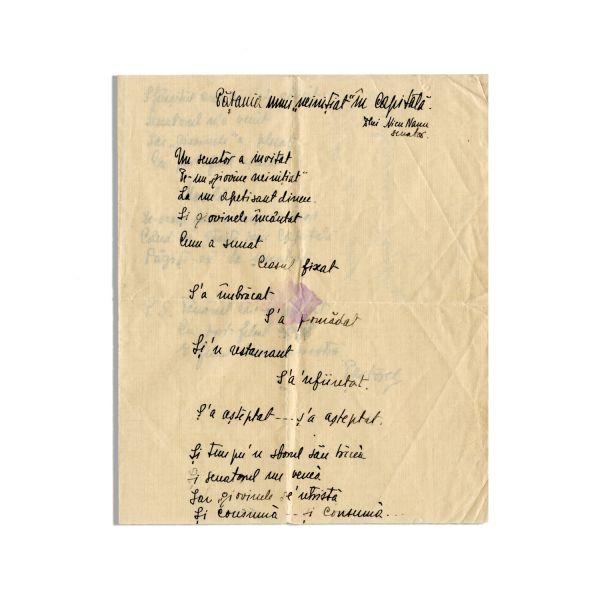 Pățania unui „neinițiat" în Capitală.
Dlui Nicu Nanu
senator.
Un senator a invitat
Pe-un giovine neinițiat"
La un apetisant dineu.
Și giovinele încântat
Cum a sunat
Ceasul fixat
S'a îmbrăcat
S'a pomădat
Și'n restaurant
S'a'nființat.
S'a așteptat.... s'a așteptat.
Și timpu'n sborul său trecea
Și senatorul nu venea
Iar giovinele se'ntrista
Și consuma... și consuma...